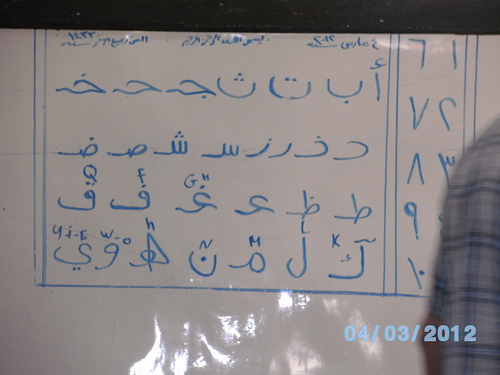 ٤ مارس سنة ٢٠١٢ بسم الله الرحمن الرحيم ربيع الآخر سنة ١٤٣٣
١ ٦
أ ب ت ث ج ح خ
٢ ٧
د ذ ر ز س ش ص ض
٣ ٨
GH F Q
ط ظ ع غ ف ق
٩
K L M N H W-O Y-i-E
ك ل م ن ه و ي
١٠
04/03/2012